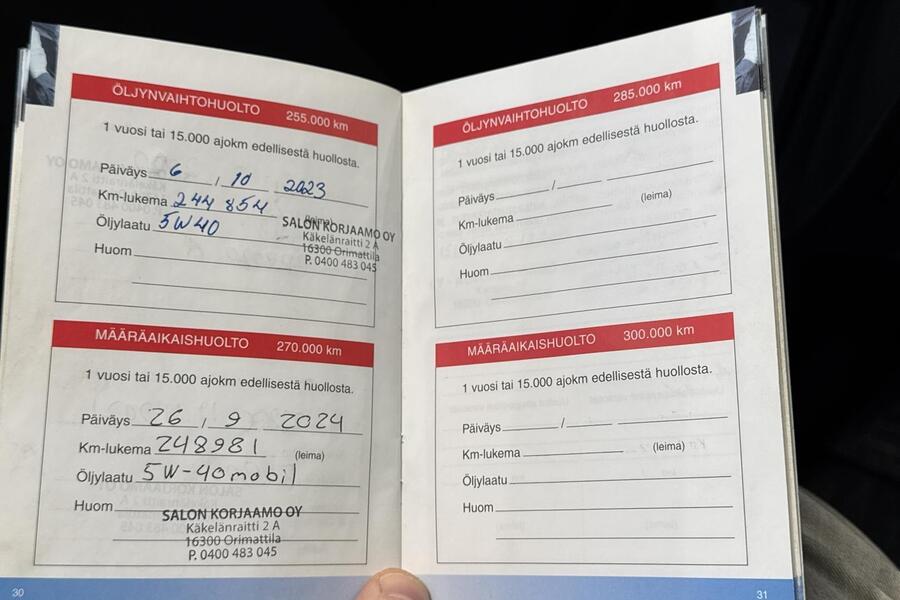 ÖLJYNVAIHTOHUOLTO 255.000 km
1 vuosi tai 15.000 ajokm edellisestä huollosta.
Päiväys 6 / 10 2023
Km-lukema 244 854
(leima)
Öljylaatu 5W40
SALON KORJAAMO OY
Käkelänraitti 2 A
16300 Orimattila
P. 0400 483 045
Huom
MÄÄRÄAIKAISHUOLTO 270.000 km
1 vuosi tai 15.000 ajokm edellisestä huollosta.
Päiväys 26 / 9 2024
Km-lukema 248981 (leima)
Öljylaatu 5W-40 mobil
Huom
SALON KORJAAMO OY
Käkelänraitti 2 A
16300 Orimattila
P. 0400 483 045
30
ÖLJYNVAIHTOHUOLTO 285.000 km
1 vuosi tai 15.000 ajokm edellisestä huollosta.
Päiväys /
Km-lukema (leima)
Öljylaatu
Huom
MÄÄRÄAIKAISHUOLTO 300.000 km
1 vuosi tai 15.000 ajokm edellisestä huollosta.
Päiväys /
Km-lukema (leima)
Öljylaatu
Huom
31